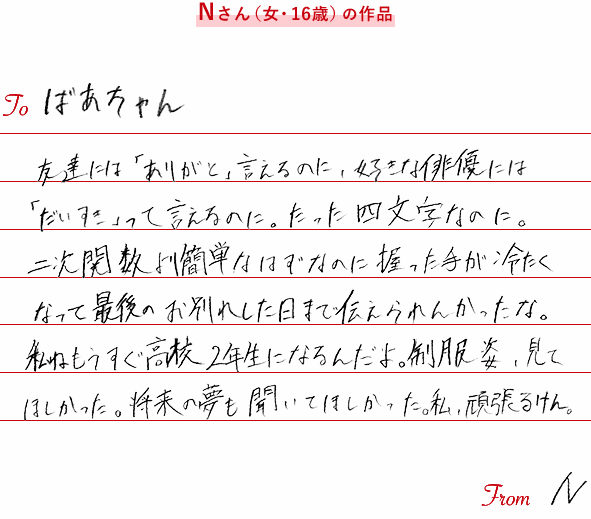 Nさん（女・16歳）の作品
To ばあちゃん
友達には「ありがと」言えるのに、好きな俳優には
「だいすき」って言えるのに。たった四文字なのに。
二次関数より簡単なはずなのに握った手が冷たく
なって最後のお別れした日まで伝えられんかったな。
私ねもうすぐ高校2年生になるんだよ。制服姿、見て
ほしかった。将来の夢も聞いてほしかった。私、頑張るけん。
From N